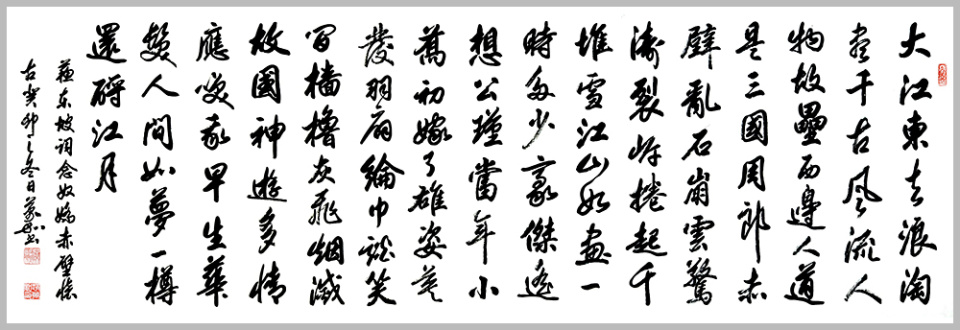 大江東去浪淘
盡千古風流人
物故壘西邊人道
是三國周郎赤
壁亂石崩雲驚
濤裂岸捲起千
堆雪江山如畫一
時多少豪傑遙
想公瑾當年小
喬初嫁了雄姿英
發羽扇綸巾談笑
間檣櫓灰飛烟滅
故國神遊多情
應笑我早生華
髮人間如夢一樽
還酹江月
蘇東坡詞念奴嬌赤壁懷
古癸卯之冬日